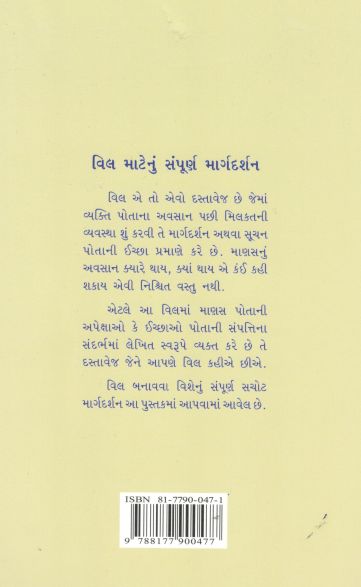 વિલ માટેનું સંપૂર્ણ માર્ગદર્શન
વિલ એ તો એવો દસ્તાવેજ છે જેમાં
વ્યક્તિ પોતાના અવસાન પછી મિલકતની
વ્યવસ્થા શું કરવી તે માર્ગદર્શન અથવા સૂચન
પોતાની ઈચ્છા પ્રમાણે કરે છે. માણસનું
અવસાન ક્યારે થાય, ક્યાં થાય એ કંઈ કહી
શકાય એવી નિશ્ચિત વસ્તુ નથી.
એટલે આ વિલમાં માણસ પોતાની
અપેક્ષાઓ કે ઈચ્છાઓ પોતાની સંપત્તિના
સંદર્ભમાં લેખિત સ્વરૂપે વ્યક્ત કરે છે તે
દસ્તાવેજ જેને આપણે વિલ કહીએ છીએ.
વિલ બનાવવા વિશેનું સંપૂર્ણ સચોટ
માર્ગદર્શન આ પુસ્તકમાં આપવામાં આવેલ છે.
ISBN 81-7790-047-1
9 788177 900477